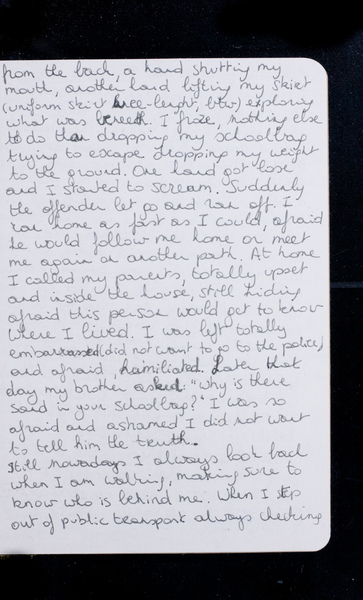 from the back, a hand shutting my
mouth, another hand lifting my skirt
(uniform skirt knee-lenght, btw) exploring
what was beneeth. I froze, nothing else
to do than dropping my schoolbag
trying to escape dropping my weight
to the ground. One hand got lose
and I started to scream. Suddenly
the offender let go and ran off. I
ran home as fast as I could, afraid
he would follow me home or meet
me again on another path. At home
I called my parents, totally upset
and inside the house, still hiding
afraid this person would get to know
where I lived. I was left totally
embarrassed (did not want to go to the police)
and afraid, humiliated. Later that
day my brother asked: "why is there
sand in your schoolbag?" I was so
afraid and ashamed I did not want
to tell him the truth.
Still nowadays I always look back
when I am walking, making sure to
know who is behind me. When I step
out of public transport always checking